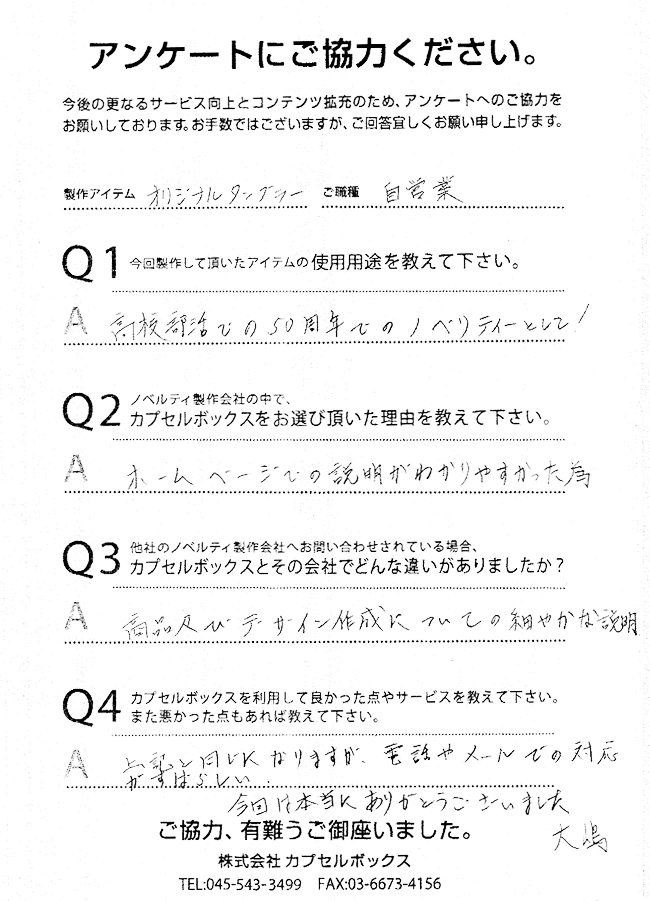 アンケートにご協力ください。
今後の更なるサービス向上とコンテンツ拡充のため、アンケートへのご協力を
お願いしております。お手数ではございますが、ご回答宜しくお願い申し上げます。
製作アイテム オリジナルタンブラー ご職種 自営業
Q1 今回製作して頂いたアイテムの使用用途を教えて下さい。
A 高校部活での50周年でのノベリティーとして!
ノベルティ製作会社の中で、
Q2 カプセルボックスをお選び頂いた理由を教えて下さい。
A ホームページでの説明がわかりやすかった為
他社のノベルティ製作会社へお問い合わせされている場合、
Q3 カプセルボックスとその会社でどんな違いがありましたか?
A 商品及びデザイン作成についての細やかな説明
Q4 カプセルボックスを利用して良かった点やサービスを教えて下さい。
また悪かった点もあれば教えて下さい。
A 上記と同じになりますが、電話やメールでの対応
がすばらしい.
今回は本当にありがとうございました
ご協力、有難うご御座いました。
大嶋
株式会社 カプセルボックス
TEL:045-543-3499 FAX:03-6673-4156